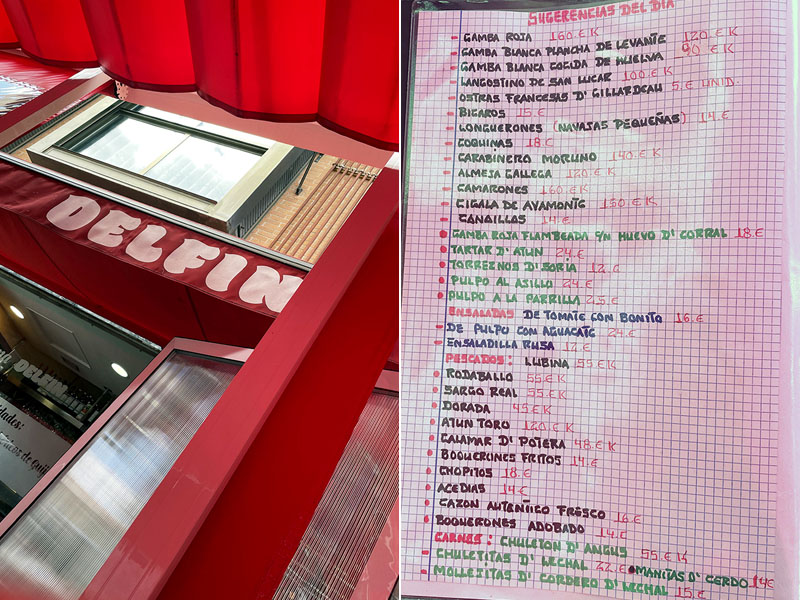 DELFIN
SUGERENCIAS DEL DIA
- GAMBA ROJA 160.€ K
- GAMBA BLANCA PLANCHA DE LEVANTE 120.€ K
- GAMBA BLANCA COCIDA DE HUELVA 90.€ K
- LANGOSTINO DE SAN LUCAR 100.€ K
- OSTRAS FRANCESAS D' GILLARDEAU 5.€ UNID.
- BIGAROS 15.€
- LONGUERONES (NAVAJAS PEQUEÑAS) 14.€
- COQUINAS 18.€
- CARABINERO MORUNO 140.€ K
- ALMEJA GALLEGA 120.€ K
- CAMARONES 160.€ K
- CIGALA DE AYAMONTE 150.€ K
- CAÑAILLAS 14.€
• GAMBA ROJA FLAMBEADA C/N HUEVO D' CORRAL 18.€
• TARTAR D' ATUN 24.€
• TORREZNOS D' SORIA 12.€
• PULPO AL AJILLO 24.€
• PULPO A LA PARRILLA 25.€
ENSALADAS DE TOMATE CON BONITO 16.€
- DE PULPO CON AGUACATE 24.€
- ENSALADILLA RUSA 12.€
PESCADOS: LUBINA 55.€ K
• RODABALLO 55.€ K
• SARGO REAL 55.€ K
• DORADA 45.€ K
• ATUN TORO 120.€ K
• CALAMAR D' POTERA 48.€ K
• BOQUERONES FRITOS 14.€
• CHOPITOS 18.€
• ACEDIAS 14.€
• CAZON AUTENTICO FRESCO 16.€
• BOQUERONES ADOBADO 14.€
CARNES: CHULETON D' ANGUS 55.€ K
- CHULETITAS D' LECHAL 22.€ • MANITAS D' CERDO 14€
- MOLLEJITAS D' CORDERO D' LECHAL 15.€